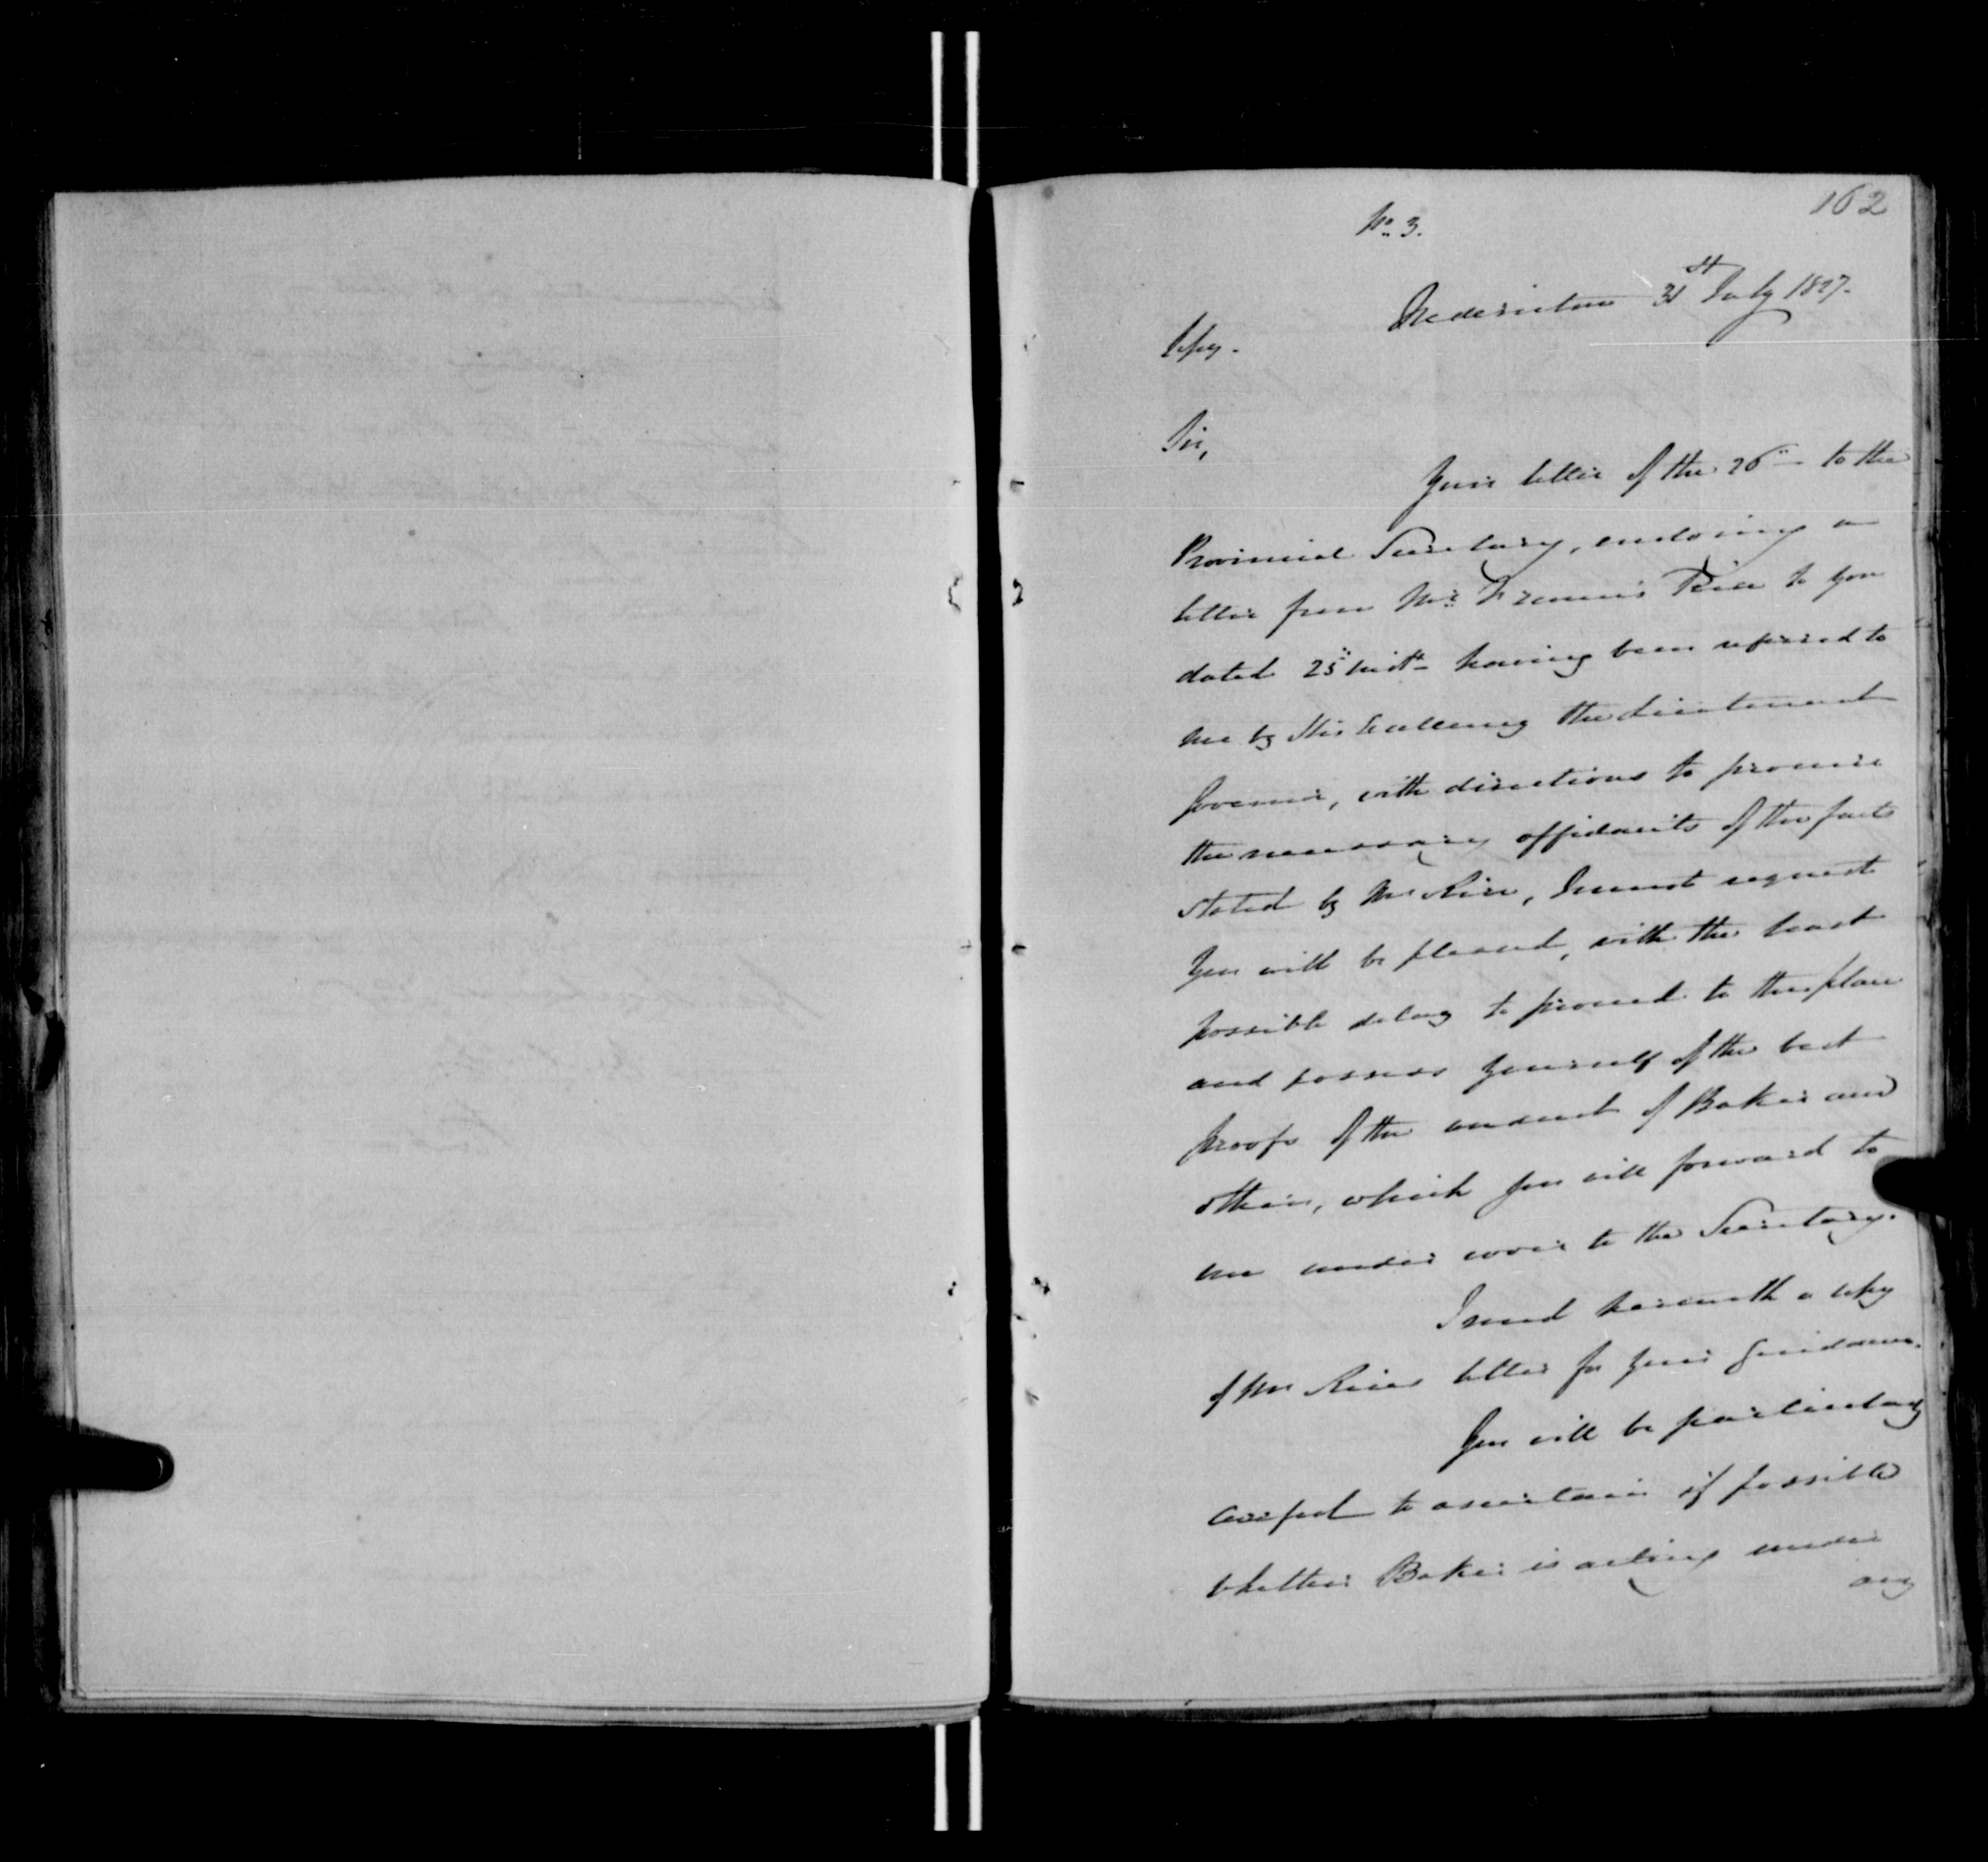 162
No. 3.
Fredericton 31st July 1827.
Copy.
Sir,
Your letter of the 26th to the
Provincial Secretary, enclosing a
letter from Mr. Francis Rice to you
dated 25th inst. having been referred to
me by His Excellency the Lieutenant
Governor, with directions to procure
the necessary affidavits of the facts
stated by Mr Rice, I must request
you will be pleased, with the least
possible delay to proceed to the place
and possess yourself of the best
proofs of the conduct of Baker and
others, which you will forward to
me under cover to the Secretary.
I send herewith a copy
of Mr Rice's letter for your guidance.
You will be particularly
careful to ascertain if possible
whether Baker is acting under
any